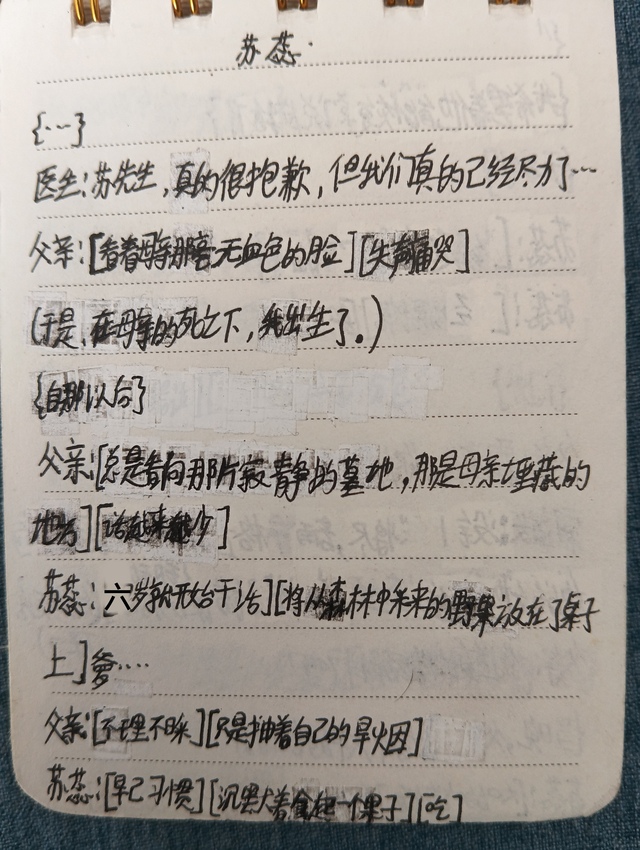 苏蕊.
{…}
医生:苏先生,真的很抱歉,但我们真的已经尽力了…
父亲:[看着母亲那容无血色的脸][失声痛哭]
(于是,在母亲的死之下,我出生了。)
{自那以后}
父亲:[总是看向那片寂静的墓地,那是母亲埋藏的
地方][话越来越少]
苏蕊:六岁就开始干活][将从森林中采来的野果放在了桌子
上]爹….
父亲:[不理不睬][只是抽着自己的旱烟]
苏蕊:[早已习惯][沉默着拿起一个果子][吃]